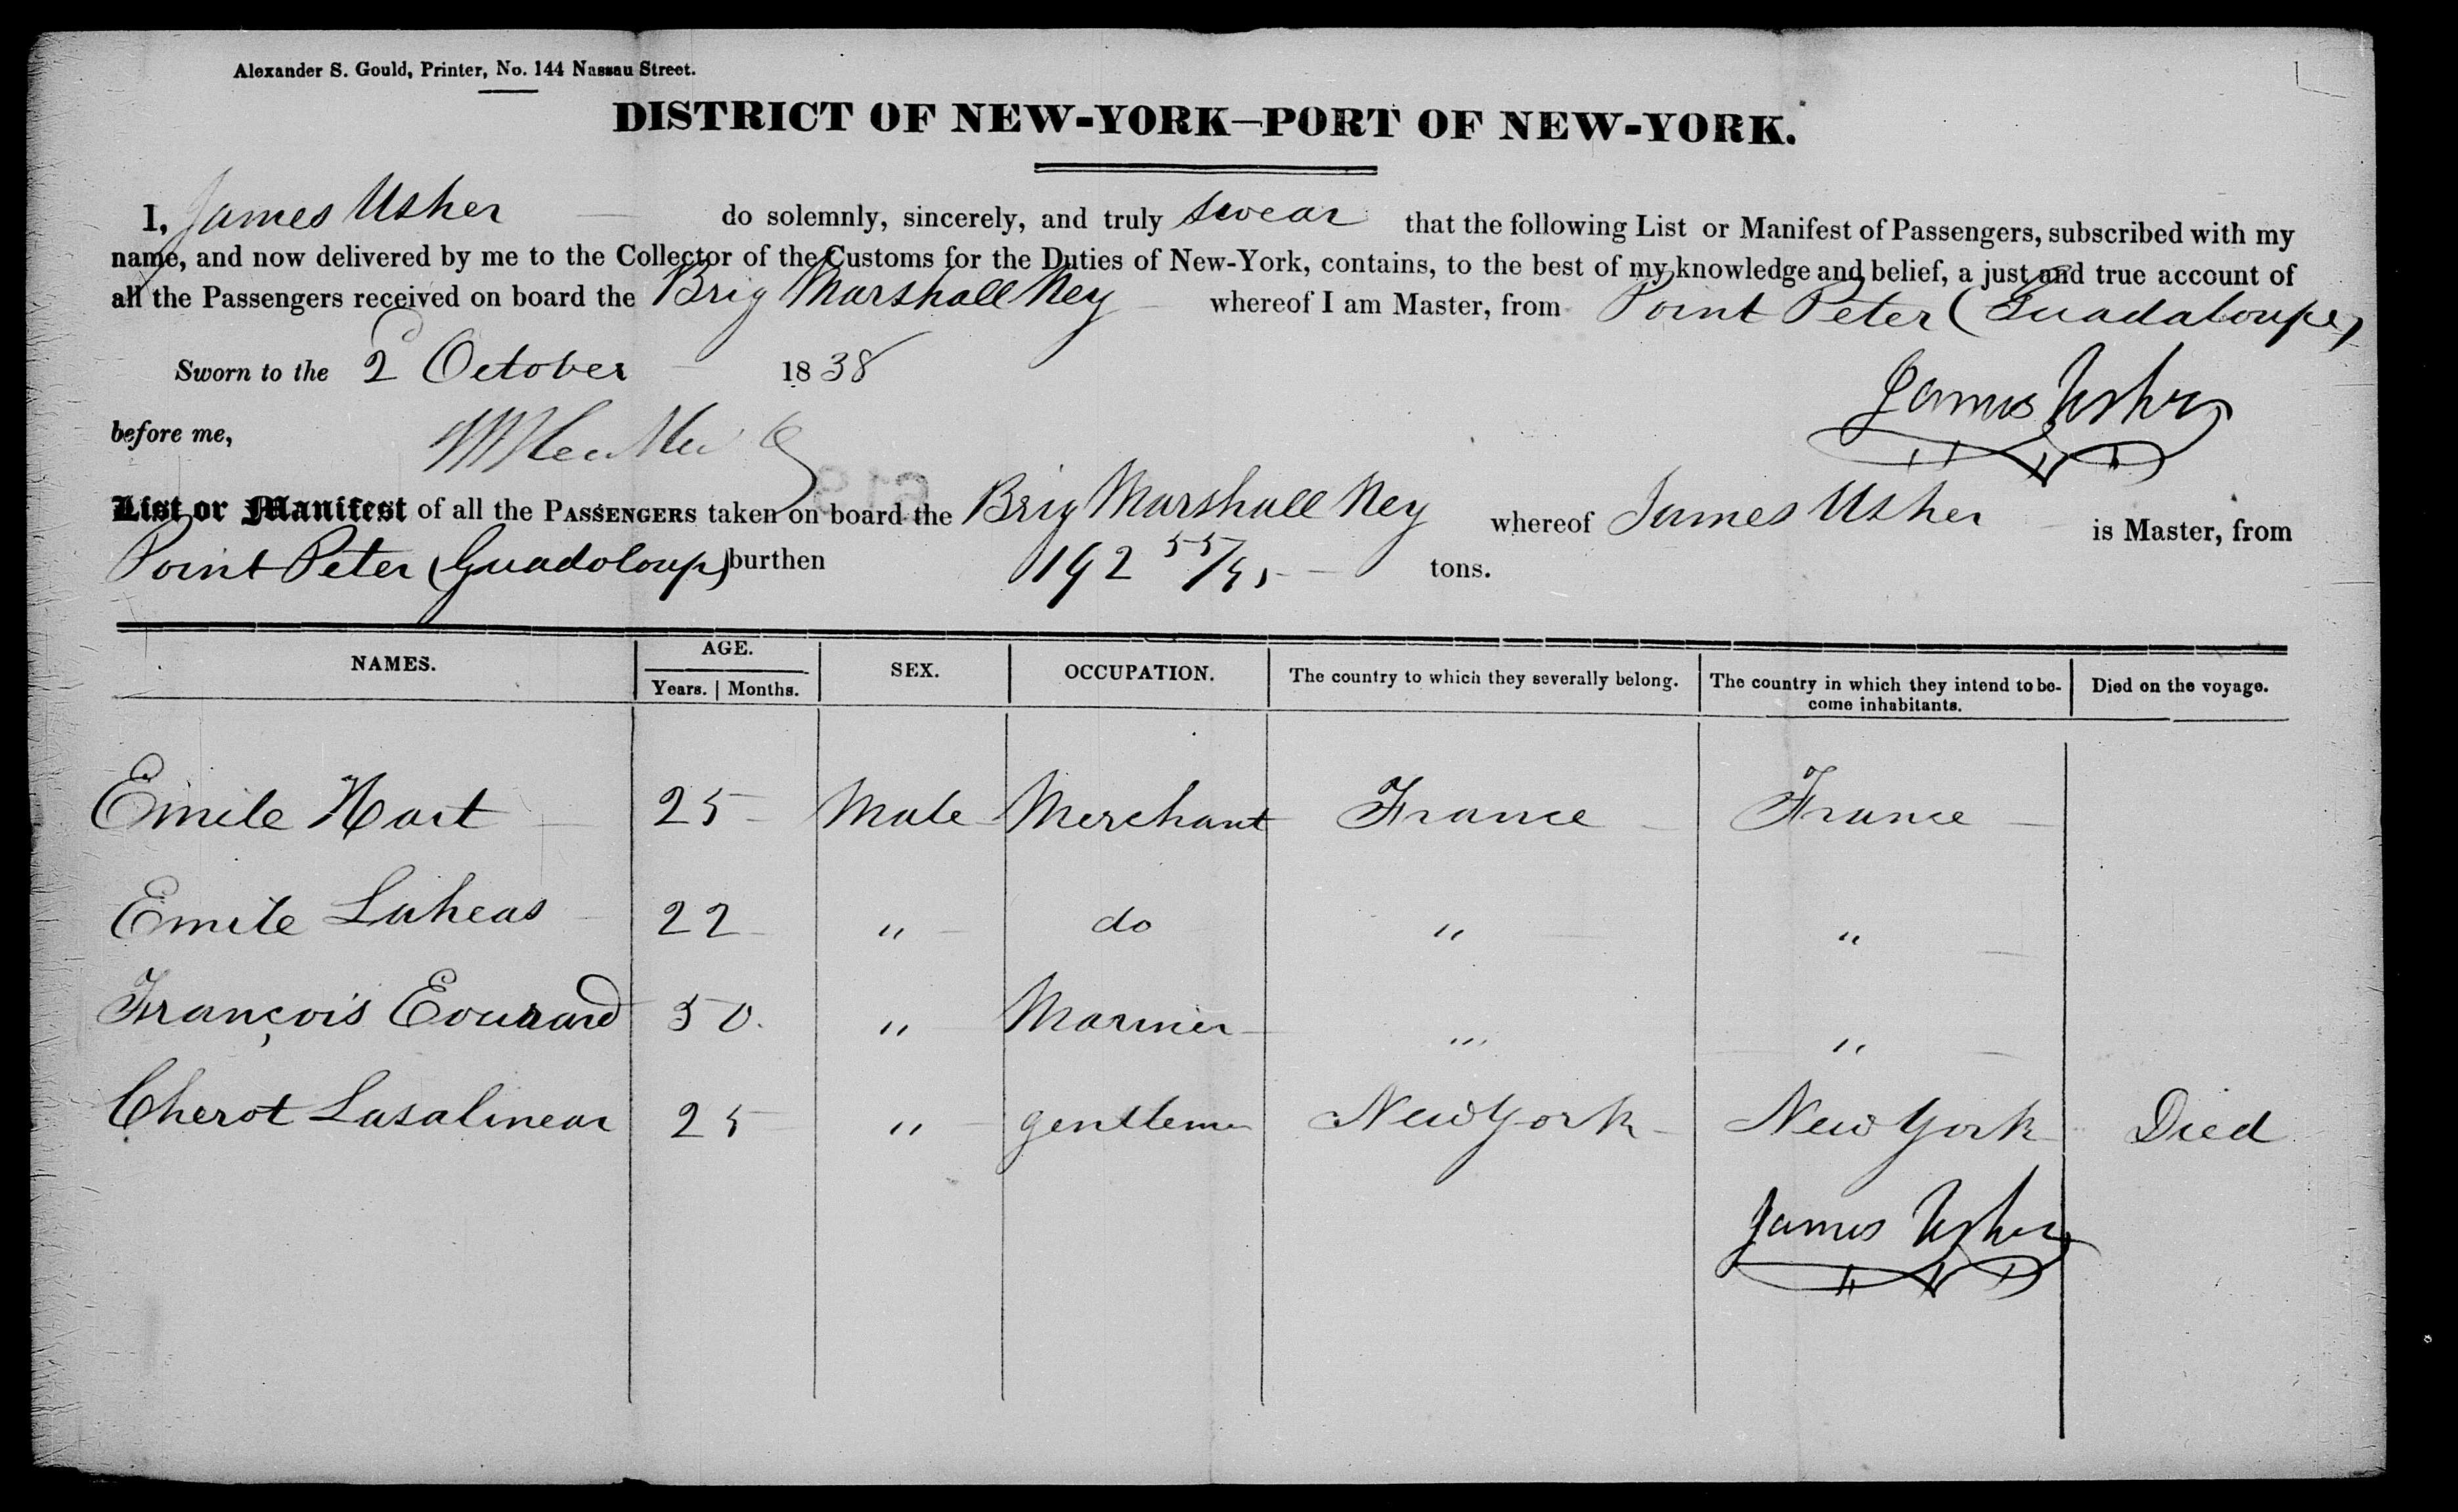 Alexander S. Gould, Printer, No. 144 Nassau Street.
DISTRICT OF NEW-YORK—PORT OF NEW-YORK.
I, James Usher do solemnly, sincerely, and truly swear that the following List or Manifest of Passengers, subscribed with my
name, and now delivered by me to the Collector of the Customs for the Duties of New-York, contains, to the best of my knowledge and belief, a just and true account of
all the Passengers received on board the Brig Marshall Ney whereof I am Master, from Point Peter (Guadaloupe)
Sworn to the 2 October 1838
James Usher
before me,
List or Manifest of all the PASSENGERS taken on board the Brig Marshall Ney whereof James Usher is Master, from
Point Peter (Guadoloup) burthen 192 55/95 tons.
NAMES. AGE. SEX. OCCUPATION. The country to which they severally belong. The country in which they intend to be-
come inhabitants. Died on the voyage.
Years. Months.
Emile Hart 25 Male Merchant France France
Emile Laheas 22 " do " "
François Eourard 50. " Mariner " "
Cherot Lasalinear 25 " gentleman New York New York Died
James Usher